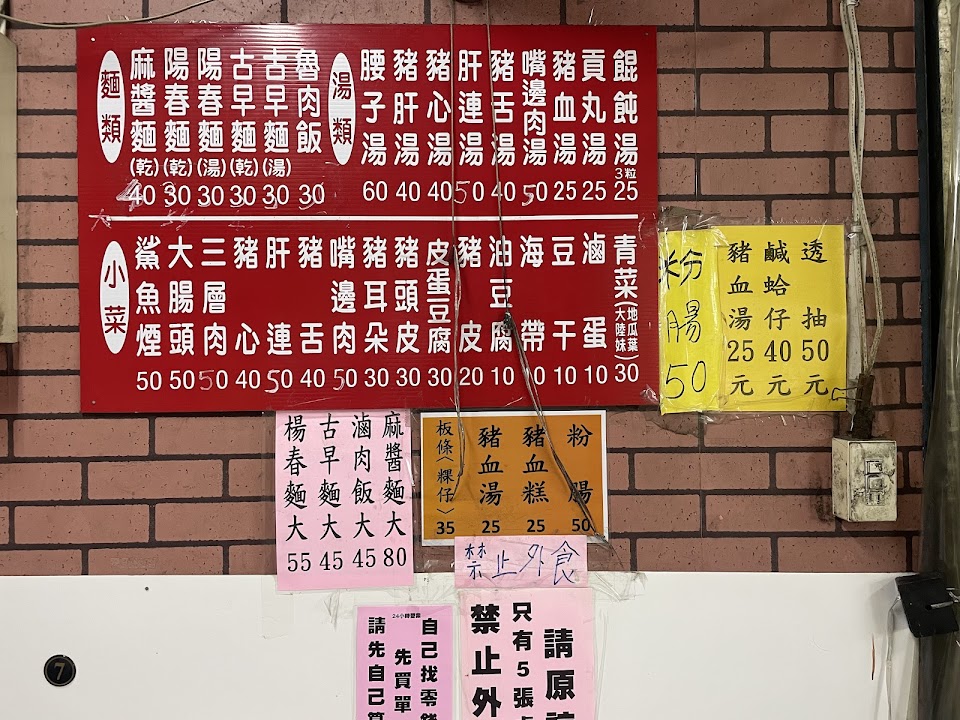 麵類
麻醬麵(乾) 40
陽春麵(乾) 30
陽春麵(湯) 30
古早麵(乾) 30
古早麵(湯) 30
魯肉飯 30
湯類
腰子湯 60
豬肝湯 40
豬心湯 40
肝連湯 50
豬舌湯 40
嘴邊肉湯 50
豬血湯 25
貢丸湯 25
餛飩湯 3粒 25
小菜
鯊魚煙 50
大腸頭 50
三層肉 50
豬心 40
肝連 50
豬舌 40
嘴邊肉 50
豬耳朵 30
豬頭皮 30
皮蛋豆腐 30
豬皮 20
油豆腐 10
海帶 10
豆干 10
滷蛋 10
青菜(地瓜葉 大陸妹) 30
粉腸 50
豬血湯 25元
鹹蛤仔 40元
透抽 50元
楊春麵大 55
古早麵大 45
滷肉飯大 45
麻醬麵大 80
板條〈粿仔〉 35
豬血湯 25
豬血糕 25
粉腸 50
禁止外食
24小時營業
自己找零錢
先買單
請先自己算
請原諒
只有5張
禁止外
7